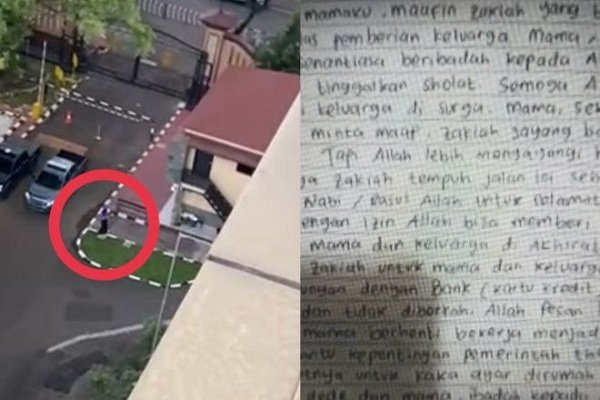 mamaku, maafin zakiah yang
pemberian keluarga Mama,
senantiasa beribadah kepada A
tinggalkan sholat. Semoga A
keluarga di surga. mama, se
minta maaf, zakiah sayang
Tapi Allah lebih menyayangi
zakiah tempuh jalan ini seb
Nabi / Rasul Allah untuk selamat
dengan izin Allah bisa memberi
mama dan keluarga di Akhirat
zakiah untuk mama dan keluarga
dengan Bank (kartu kredit
dan tidak diberkah. Allah Pesan
mama berhenti bekerja menjad
kepentingan pemerintah th
untuk kaka agar dirumah
dede dan mama, ibadah kepada